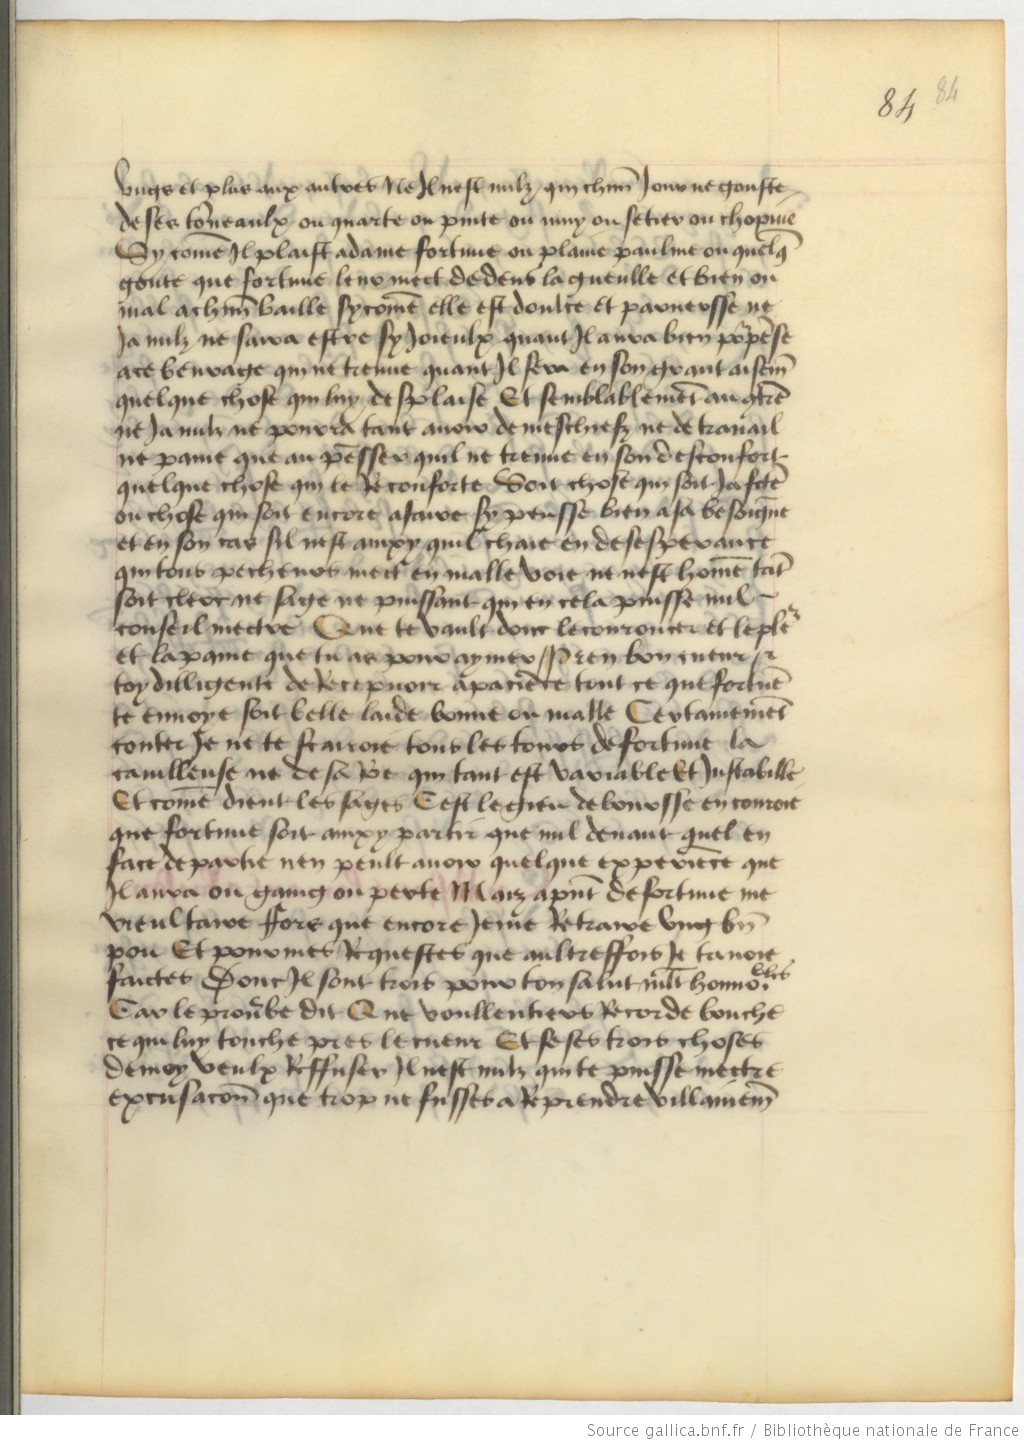 84 84
vngs et plus aux autres Ne Il nest nulz qui chm̄ Iour ne gouste
de ses tōneaulx ou quarte ou pinte ou muy ou setier ou chopine
Sy come Il plaist a dame fortune ou plaine paulme ou quelq̄
goute que fortune leur mect dedens la gueulle et bien ou
mal a chm̄ baille sy comē elle est doulce et paruersse ne
Ja nulz ne sara estre sy Joieulx quant Il aura bien pōpēse
a ce beurage qui ne treuue quant Il sera en son grant aisem̄
quelque chose qui luy desplaise Et semblablemēt au 9trē
ne Ja nulz ne pourra tant auoir de meschiefz ne de trauail
ne paine que au pēsser quil ne treuue en son desconfort
quelque chose qui le Reconforte Soit chose qui soit Ja fctē
ou chose qui soit encore a faire sy pensse bien a sa besoigne
et en son cas sil nest ainxy quil chaie en desesperance
qui tous pecheurs mect en malle voie ne nest homē tāt
soit clerc ne sage ne puissant qui en cela puisse nul
conseil mectre Que te vault donc le couroucer et le plēr
et la paine que tu as pour aymer Pren bon cueur
toy dilligente de Recepuoir a paciēce tout ce que fortunē
te ennoye soit belle laide bonne ou malle Certainemēt
conter Je ne te scairoie tous les tours de fortune la
cauilleuse ne de sa Roe qui tant est variable Et Instabille
Et comē dient les sages Cest le gieu de bourse en couroie
que fortune soit ainxy partir que nul deuant quel en
face de partie nen peult auoir quelque experiēce que
Il aura ou gaing ou perte Mais apn̄t de fortune me
vieul taire ffors que encore Jeme Retraire vng bn̄
pou Et pour mes Requestes que aultreffois Je tauoie
faictes Donc Il sont trois pour ton salut mlt honnor.bles
Car le prouērbe dit Que voullentiers Recorde bouche
ce qui luy touche pres le cueur Et se ses trois choses
de moy veulx Reffuser Il nest nulz qui te puisse mectre
excusacōn que trop ne fusses a Reprendre villainem̄
Source gallica.bnf.fr / Bibliothèque nationale de France